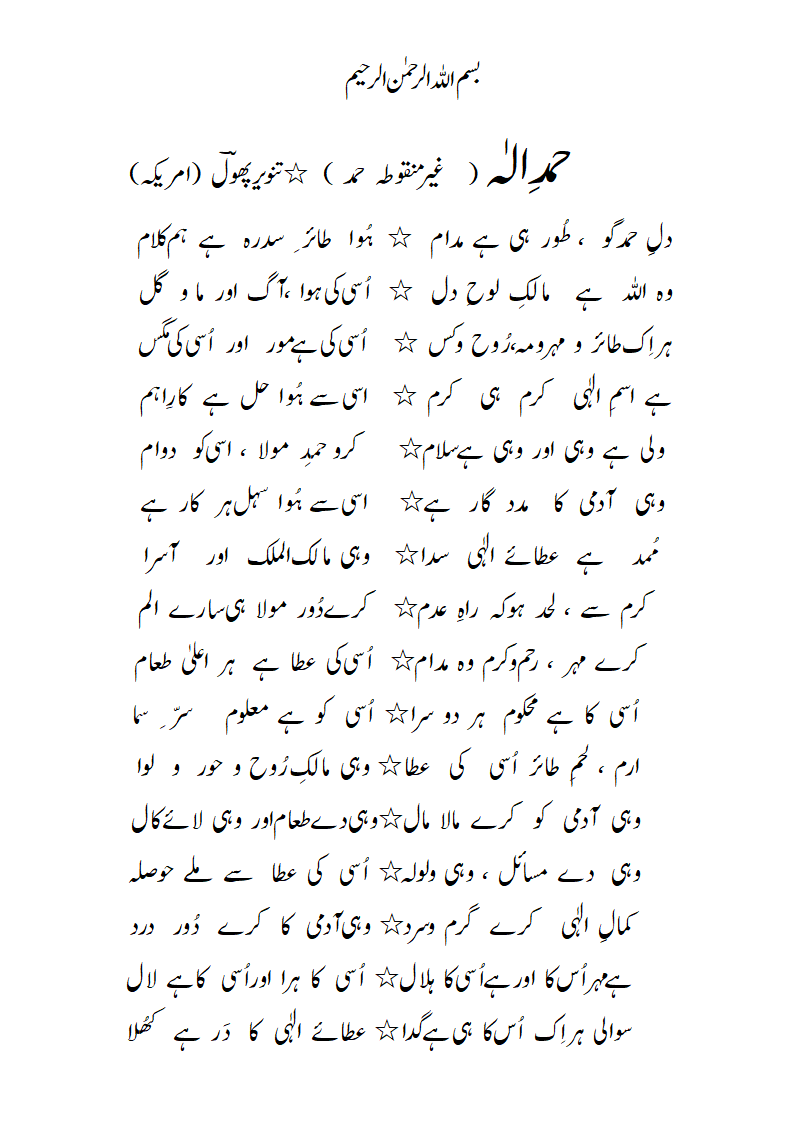 بسم اللہ الرحمٰن الرحیم
حمدِ الٰہ ( غیر منقوطہ حمد ) ☆ تنویر پھولؔ (امریکہ)
دلِ حمد گو ، طُور ہی ہے مدام ☆ ہُوا طائرِ سدرہ ہے ہم کلام
وہ اللہ ہے مالکِ لوحِ دل ☆ اُسی کی ہوا ،آگ اور ما و گل
ہر اِک طائر و مہر ومہ،رُوح وکس ☆ اُسی کی ہے مور اور اُسی کی مگس
ہے اسمِ الٰہی کرم ہی کرم ☆ اسی سے ہُوا حل ہے کارِ اہم
ولی ہے وہی اور وہی ہے سلام☆ کرو حمدِ مولا ، اسی کو دوام
وہی آدمی کا مدد گار ہے☆ اسی سے ہُوا سہل ہر کار ہے
مُمد ہے عطائے الٰہی سدا☆ وہی مالک الملک اور آسرا
کرم سے ، لحد ہو کہ راہِ عدم☆ کرے دُور مولا ہی سارے الم
کرے مہر ، رحم وکرم وہ مدام☆ اُسی کی عطا ہے ہر اعلیٰ طعام
اُسی کا ہے محکوم ہر دو سرا☆ اُسی کو ہے معلوم سرِّ سما
ارم ، لحمِ طائر اُسی کی عطا☆ وہی مالکِ رُوح و حور و لوا
وہی آدمی کو کرے مالا مال☆ وہی دے طعام اور وہی لائے کال
وہی دے مسائل ، وہی ولولہ☆ اُسی کی عطا سے ملے حوصلہ
کمالِ الٰہی کرے گرم وسرد☆ وہی آدمی کا کرے دُور درد
ہے مہر اُس کا اور ہے اُسی کا ہلال☆ اُسی کا ہرا اور اُسی کا ہے لال
سوالی ہر اِک اُس کا ہی ہے گدا☆ عطائے الٰہی کا دَر ہے کھُلا